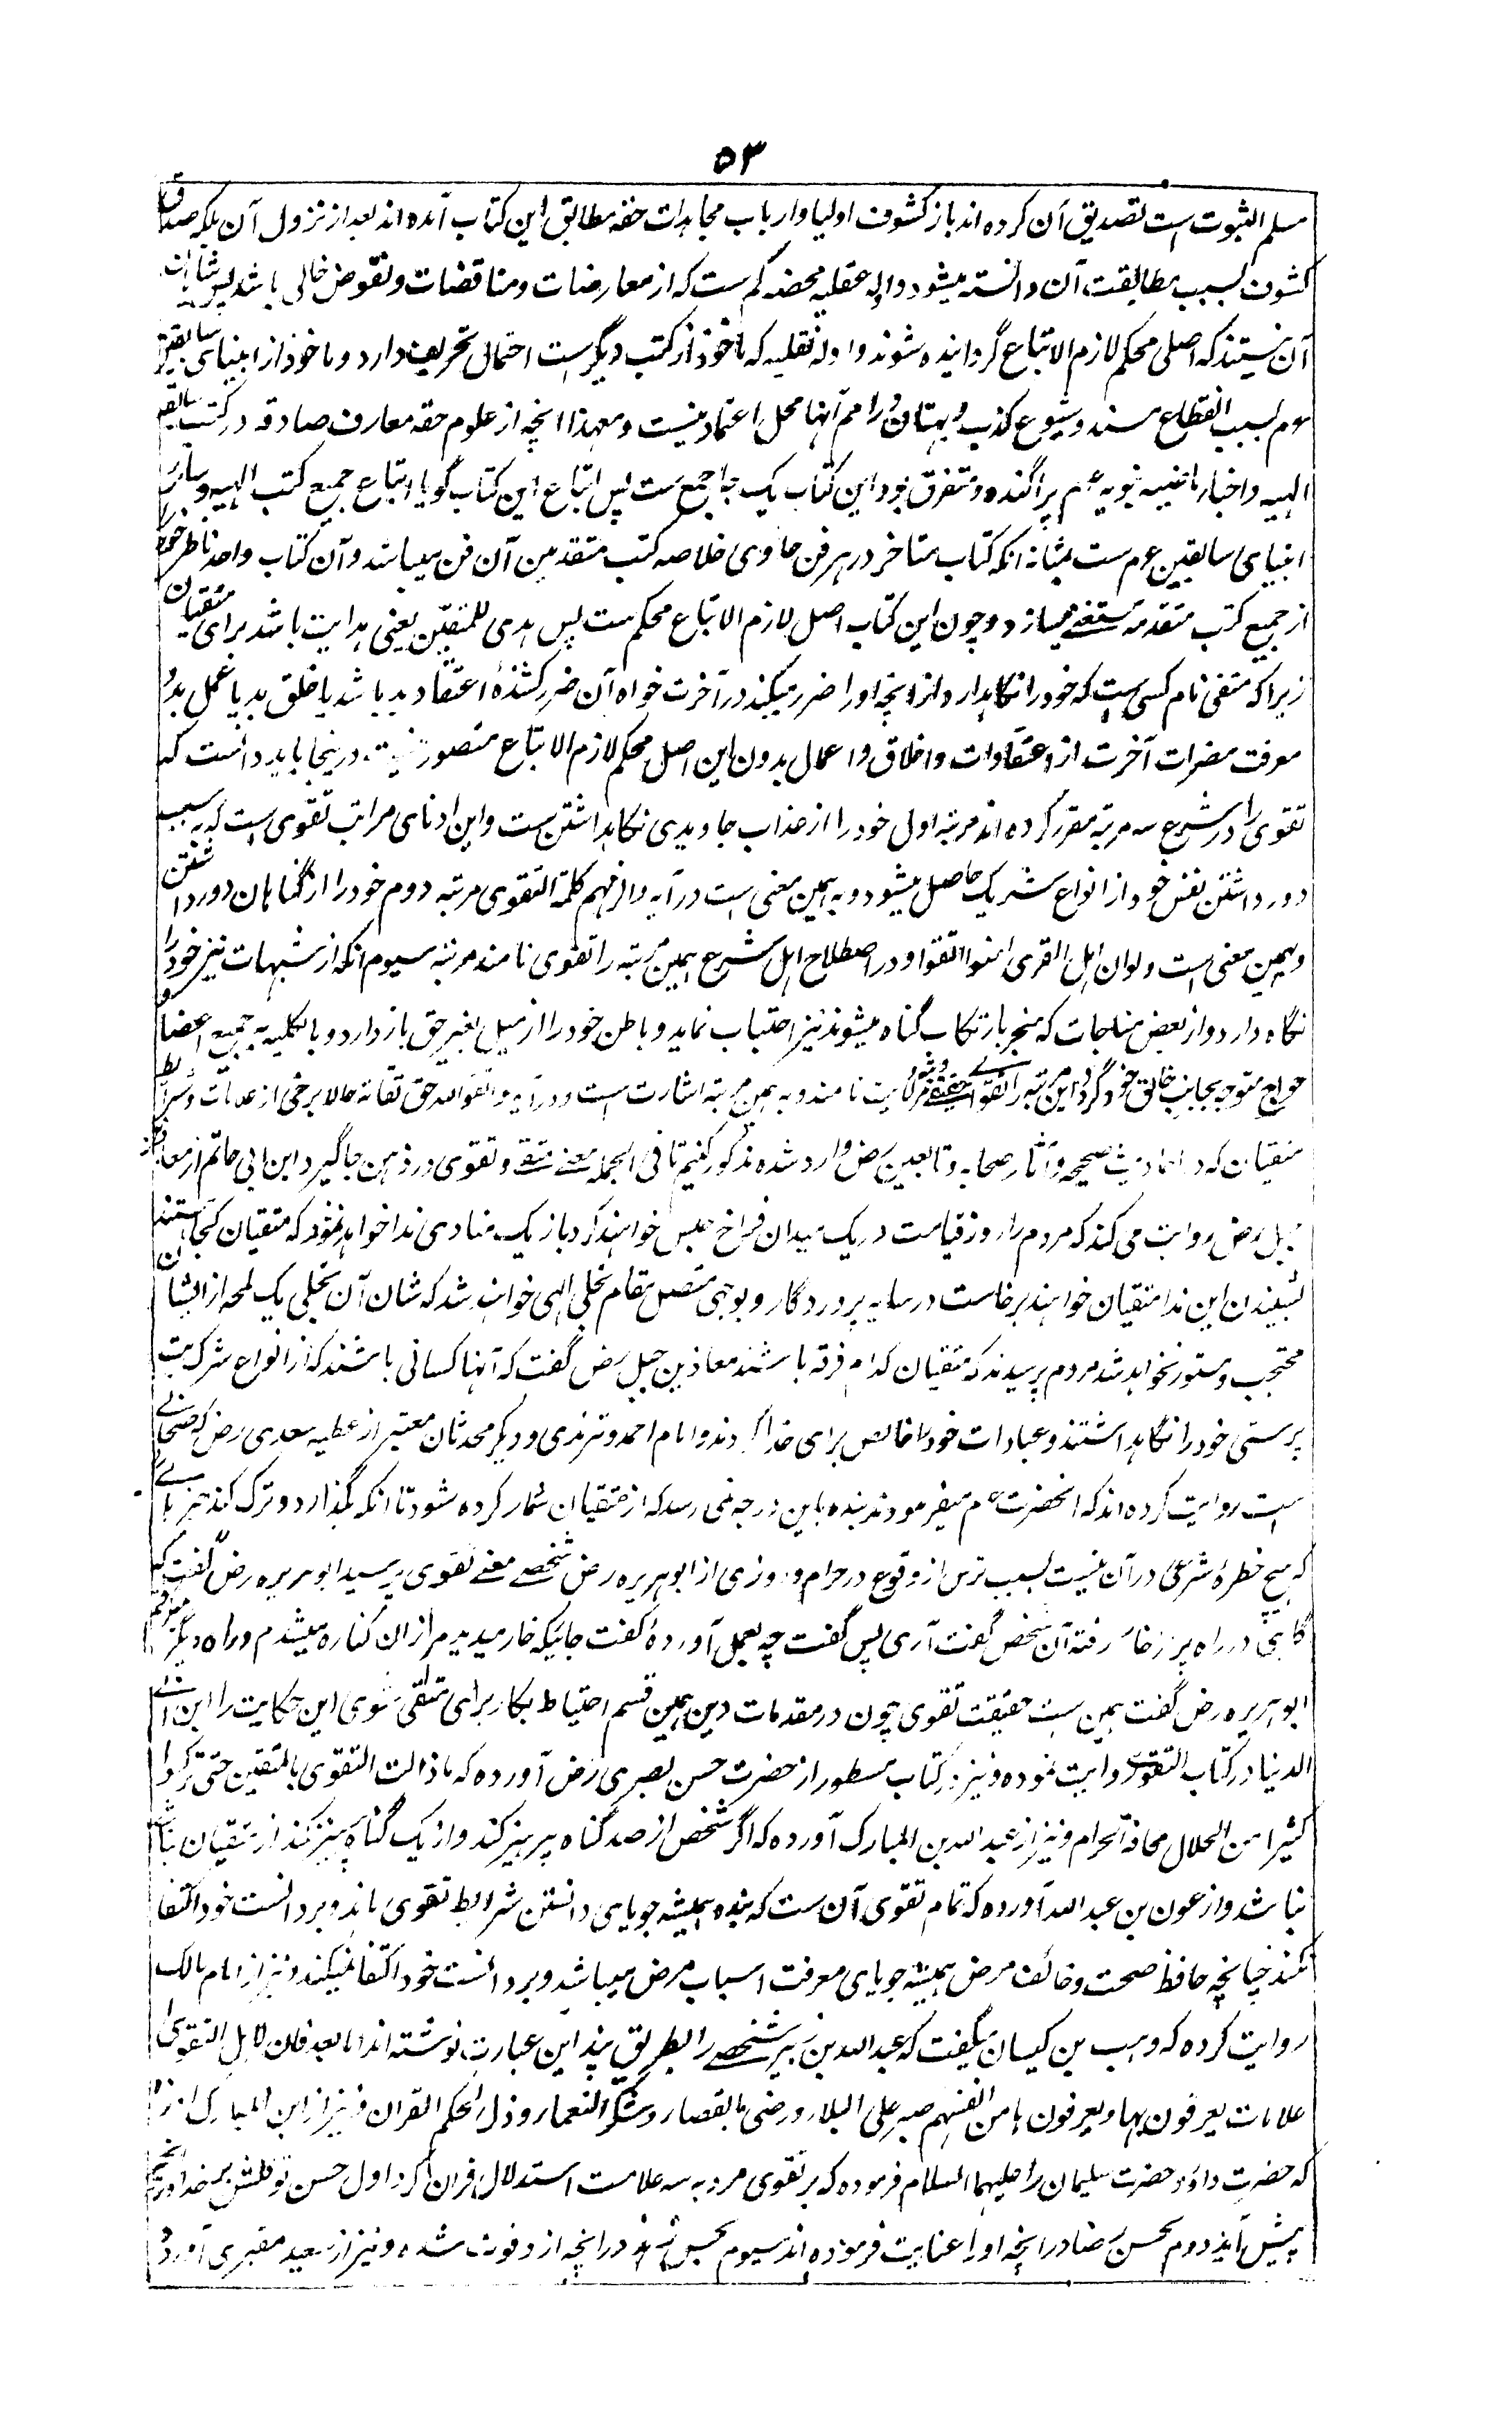 ۵۳
مسلم الثبوت است تصدیق آن کرده اند باز کشوف اولیا و ارباب مجاهدات حقه مطابق این کتاب آمده اند بعد از نزول آن بلکه صدق
کشوف بسبب مطابقت آن دانسته میشود و ادله عقلیه محضه کم ست که از معارضات و مناقضات و نقوض خالی باشد پس شایان
آن نیستند که اصلی محکم لازم الاتباع گردانیده شوند و ادله نقلیه که ماخوذ از کتب دیگرست احتمال تحریف دارد و ماخوذ از انبیای سابقین
عم بسبب انقطاع سند و شیوع کذب و بهتان در امم آنها محل اعتماد نیست و معهذا انچه از علوم حقه معارف صادقه در کتب سابقه
الهیه و اخبار ماضیه نبویه عم پراگنده و متفرق بود این کتاب یک جا جمع ست پس اتباع این کتاب گویا اتباع جمیع کتب الهیه و سائر
انبیای سابقین عم ست بمثابه انکه کتاب متاخر در هر فن حاوی خلاصه کتب متقدمین آن فن میباشد و آن کتاب واحد ناظر خود را
از جمیع کتب متقدمه مستغنی میسازد و چون این کتاب اصل لازم الاتباع محکم ست پس هدی للمتقین یعنی هدایت باشد برای متقیان
زیراکه متقی نام کسی ست که خود را نگاهدارد از انچه او را ضرر میکند در آخرت خواه آن ضرر کشندهٔ اعتقاد بد باشد یا خلق بد یا عمل بد و
معرفت مضرات آخرت از اعتقادات و اخلاق و اعمال بدون این اصل محکم لازم الاتباع متصور نیست درینجا باید دانست که
تقوی را در شرع سه مرتبه مقرر کرده اند مرتبه اول خود را از عذاب جاویدی نگاهداشتن ست و این ادنای مراتب تقوی است که بسبب
دور داشتن نفس خود از انواع شرک حاصل میشود و به همین معنی است در آیه والزمهم کلمة التقوی مرتبه دوم خود را از گناهان دور داشتن
و بهمین معنی است ولو ان اهل القری امنوا واتقوا و در اصطلاح اهل شرع همین مرتبه را تقوی نامند مرتبه سیوم انکه از شبهات نیز خود را
نگاه دارد و از بعض مباحات که منجر بارتکاب گناه میشوند نیز اجتناب نماید و باطن خود را از میل بغیر حق باز دارد و بالکلیه بجمیع اعضا و
جوارح متوجه بجانب خالق خود گردد این مرتبه را تقوای حقیقی و ولایت نامند و به همین مرتبه اشارت است در آیه واتقوا الله حق تقاته حالا برخی از علامات و شرائط
متقیان که در احادیث صحیحه و آثار صحابه و تابعین رض وارد شده مذکور کنیم تا فی الجمله معنی متقی و تقوی در ذهن جا گیرد ابن ابی حاتم از معاذ بن
جبل رض روایت می کند که مردم را روز قیامت در یک میدان فراخ حبس خواهند کرد باز یک منادی ندا خواهد نمود که متقیان کجا هستند
بشنیدن این ندا متقیان خواهند برخاست در سایه پروردگار و بوجهی متصل بمقام تجلی الهی خواهند شد که شان آن تجلی یک لمحه از ایشان
محتجب و مستور نخواهد شد مردم پرسیدند که متقیان کدام فرقه باشند معاذ بن جبل رض گفت که آنها کسانی باشند که از انواع شرک بت
پرستی خود را نگاهداشتند و عبادات خود را خالص برای خدا کردند و امام احمد و ترمذی و دیگر محدثان معتبر از عطیه سعدی رض که صحابی
است روایت کرده اند که انحضرت عم میفرمودند بنده باین درجه نمی رسد که از متقیان شمار کرده شود تا انکه بگذارد و ترک کند چیزهایی
که هیچ خطرهٔ شرعی در آن نیست بسبب ترس از وقوع در حرام و روزی از ابوهریره رض شخصی معنی تقوی پرسید ابوهریره رض گفت که
گاهی در راه پر خار رفتهٔ آن شخص گفت آری پس گفت چه بعمل آوردهٔ گفت جائیکه خار میدیدم از ان کناره میشدم و راه دیگر میرفتم
ابوهریره رض گفت همین ست حقیقت تقوی چون در مقدمات دین همین قسم احتیاط بکار بری متقی شوی این حکایت را ابن ابی
الدنیا در کتاب التقوی روایت نموده و نیز در کتاب مسطور از حضرت حسن بصری رض آورده که ما زالت التقوی بالمتقین حتی ترکوا
کثیرا من الحلال مخافة الحرام و نیز از عبد الله بن المبارک آورده که اگر شخص از صد گناه پرهیز کند و از یک گناه پرهیز نکند از متقیان
نباشد و از عون بن عبد الله آورده که تمام تقوی آن ست که بنده همیشه جویای دانستن شرائط تقوی باند و بر دانست خود اکتفا
نکند چنانچه حافظ صحت و خائف مرض همیشه جویای معرفت اسباب مرض میباشد و بر دانست خود اکتفا نمیکند و نیز از امام مالک
روایت کرده که وهب بن کیسان میگفت که عبد الله بن زبیر شخصی را بطریق پند این عبارت نوشته اند اما بعد فان لاهل التقوی
علامات یعرفون بها ویعرفونها من انفسهم صبر علی البلاء ورضی بالقضاء وشکر النعماء وذل لحکم القران و نیز از ابن المبارک آورده
که حضرت داؤد حضرت سلیمان را علیهما السلام فرموده که بر تقوی مرد به سه علامت استدلال فراوان کرد اول حسن توکلش بر خدا در انچه
پیش آید دوم بحسن رضا در انچه او را عنایت فرموده اند سیوم بحسن زهد در انچه ازو فوت شده و نیز از سعید مقبری آورده